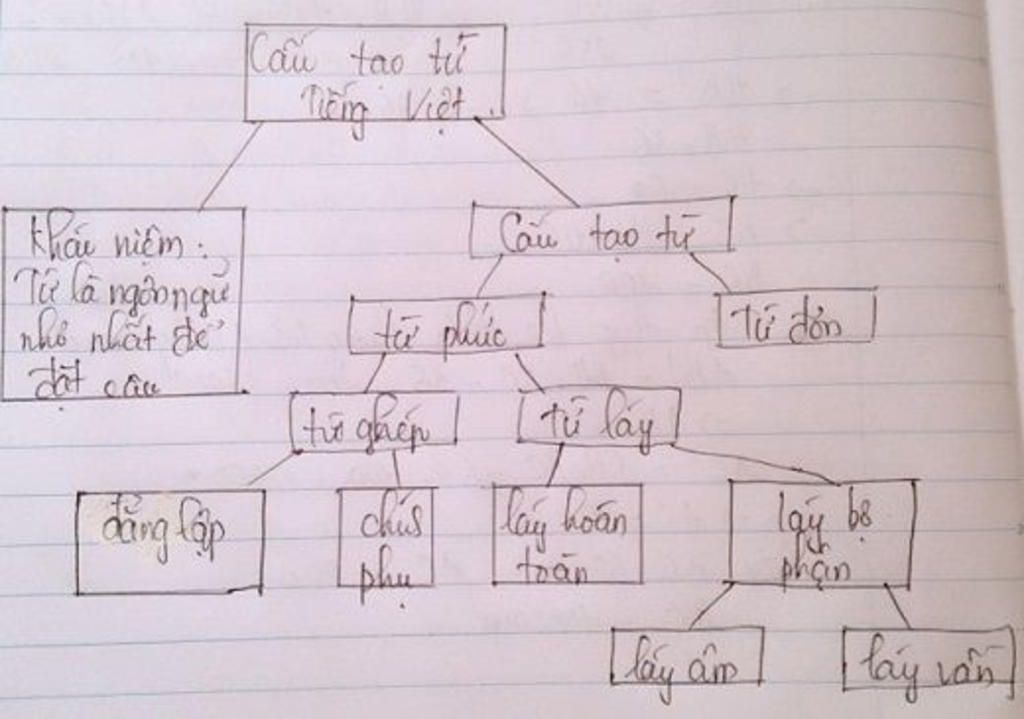 Cấu tạo từ
Tiếng Việt.
Khái niệm:
Từ là ngôn ngữ
nhỏ nhất để
đặt câu
Cấu tạo từ
từ phức
Từ đơn
từ ghép
từ láy
đẳng lập
chính
phụ
láy hoàn
toàn
láy bộ
phận
láy âm
láy vần